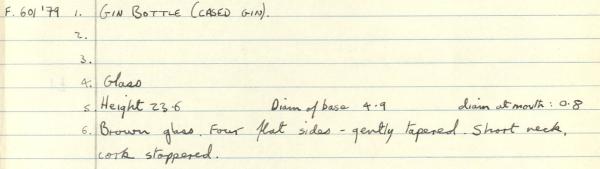 F.601'79 1. GIN BOTTLE (CASED GIN).
2.
3.
4. Glass
5. Height 23.6 Diam of base 4.9 diam at mouth: 0.8
6. Brown glass. Four flat sides - gently tapered. Short neck,
cork stoppered.